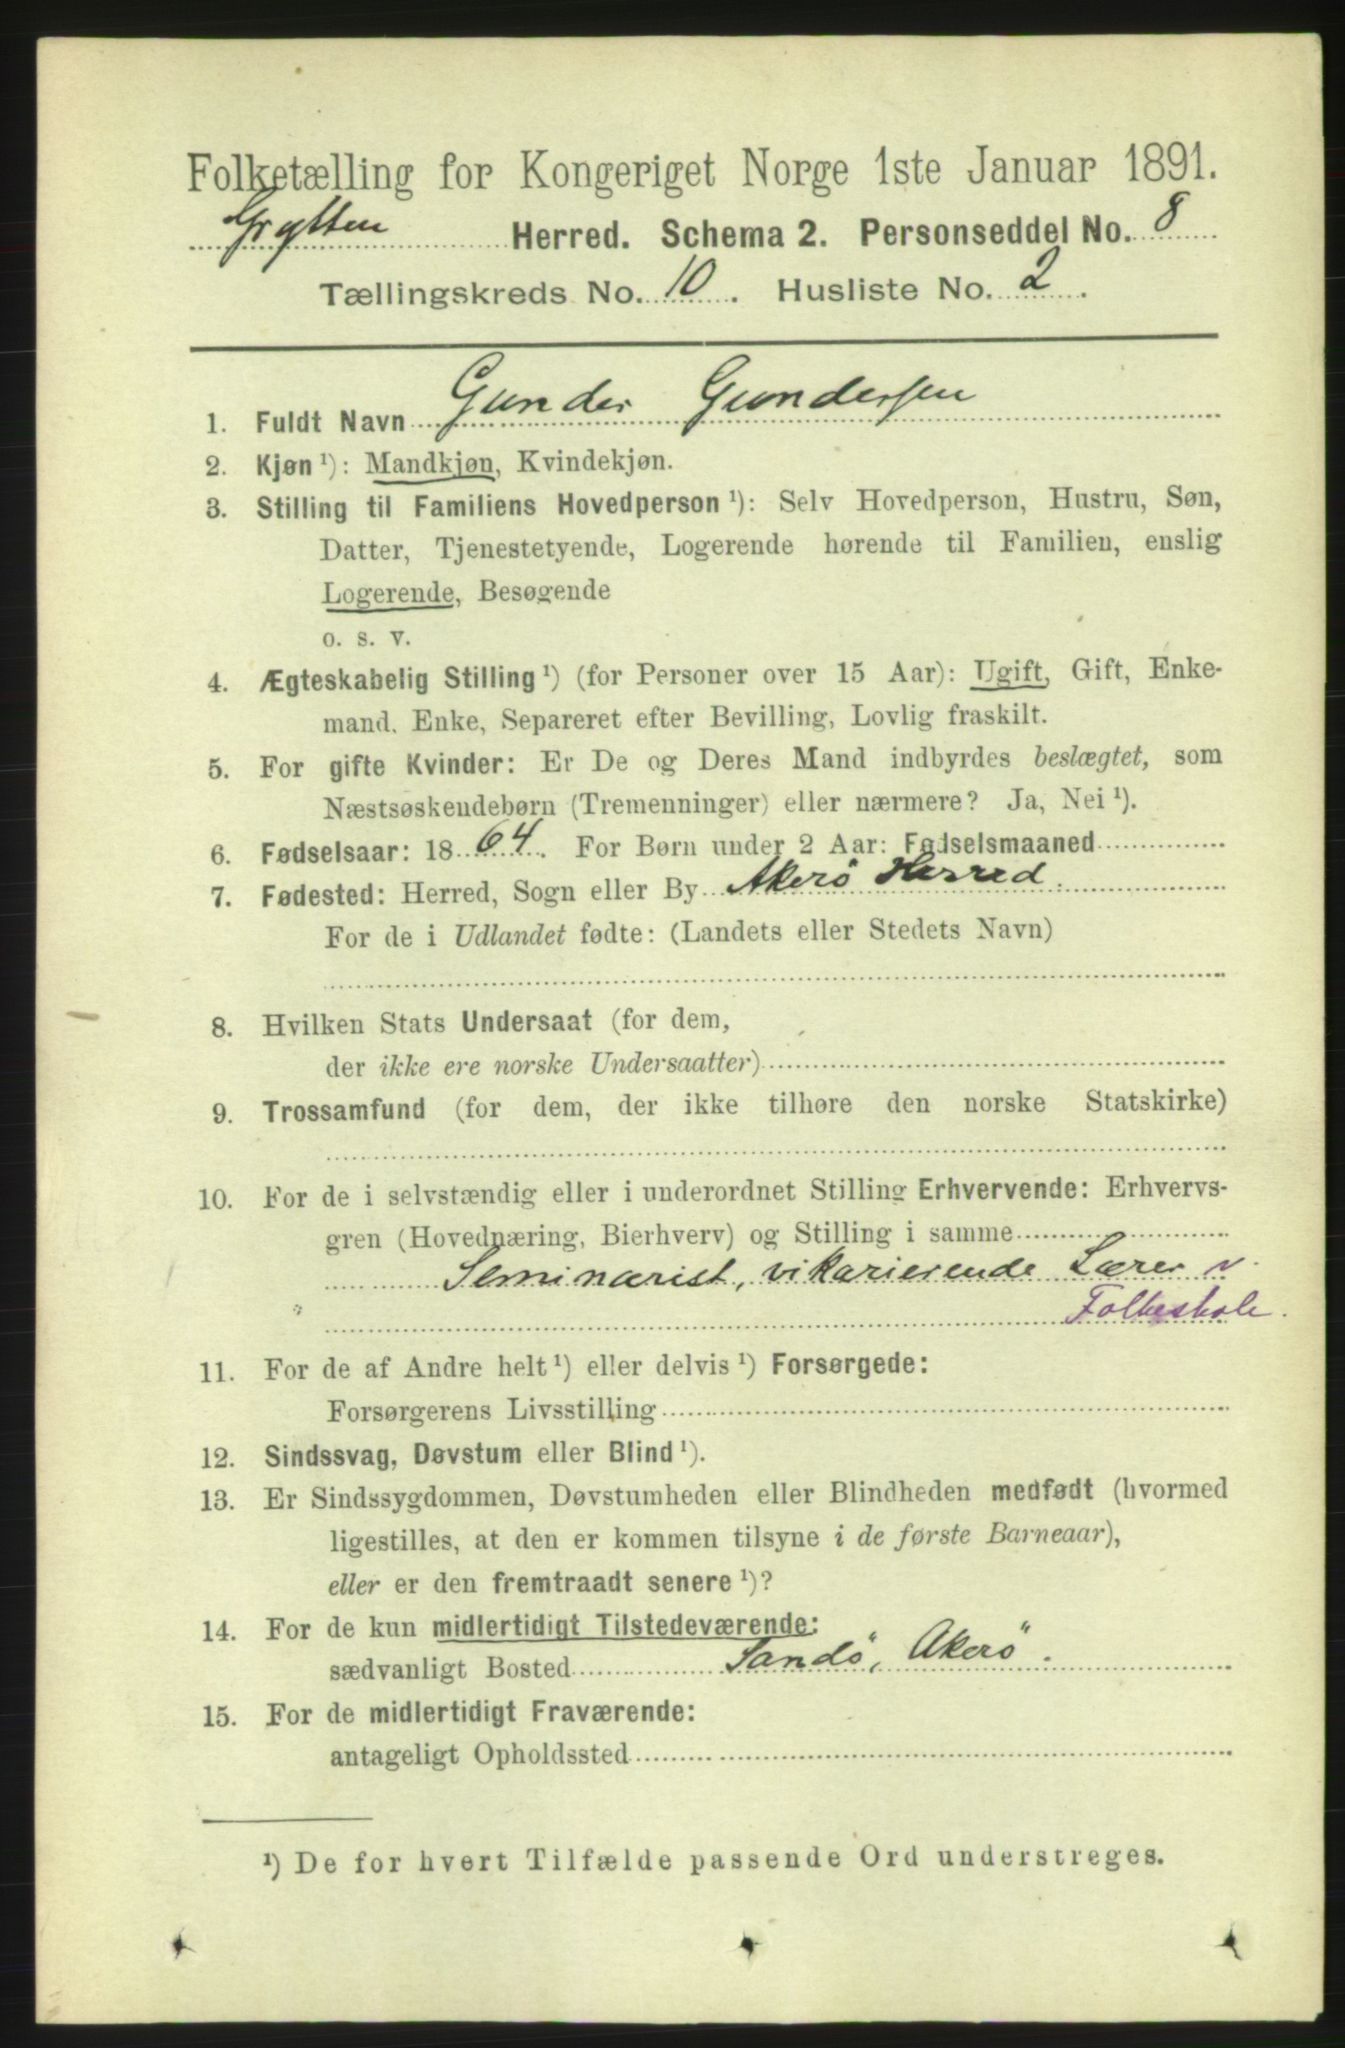 Folketælling for Kongeriget Norge 1ste Januar 1891.
Grytten Herred. Schema 2. Personseddel No. 8
Tællingskreds No. 10. Husliste No. 2.
1. Fuldt Navn Gunder Gundersen
2. Kjøn ¹): Mandkjøn, Kvindekjøn.
3. Stilling til Familiens Hovedperson ¹): Selv Hovedperson, Hustru, Søn,
Datter, Tjenestetyende, Logerende hørende til Familien, enslig
Logerende, Besøgende
o. s. v.
4. Ægteskabelig Stilling ¹) (for Personer over 15 Aar): Ugift, Gift, Enke-
mand, Enke, Separeret efter Bevilling, Lovlig fraskilt.
5. For gifte Kvinder: Er De og Deres Mand indbyrdes beslægtet, som
Næstsøskendebørn (Tremenninger) eller nærmere? Ja, Nei ¹).
6. Fødselsaar: 1864. For Børn under 2 Aar: Fødselsmaaned
7. Fødested: Herred, Sogn eller By Akerö Herred.
For de i Udlandet fødte: (Landets eller Stedets Navn)
8. Hvilken Stats Undersaat (for dem,
der ikke ere norske Undersaatter)
9. Trossamfund (for dem, der ikke tilhøre den norske Statskirke)
10. For de i selvstændig eller i underordnet Stilling Erhvervende: Erhvervs-
gren (Hovednæring, Bierhverv) og Stilling i samme
Seminarist, vikarierende Lærer v.
Folkeskole.
11. For de af Andre helt ¹) eller delvis ¹) Forsørgede:
Forsørgerens Livsstilling
12. Sindssvag, Døvstum eller Blind ¹).
13. Er Sindssygdommen, Døvstumheden eller Blindheden medfødt (hvormed
ligestilles, at den er kommen tilsyne i de første Barneaar),
eller er den fremtraadt senere ¹)?
14. For de kun midlertidigt Tilstedeværende:
sædvanligt Bosted Sandö, Akerö.
15. For de midlertidigt Fraværende:
antageligt Opholdssted
¹) De for hvert Tilfælde passende Ord understreges.